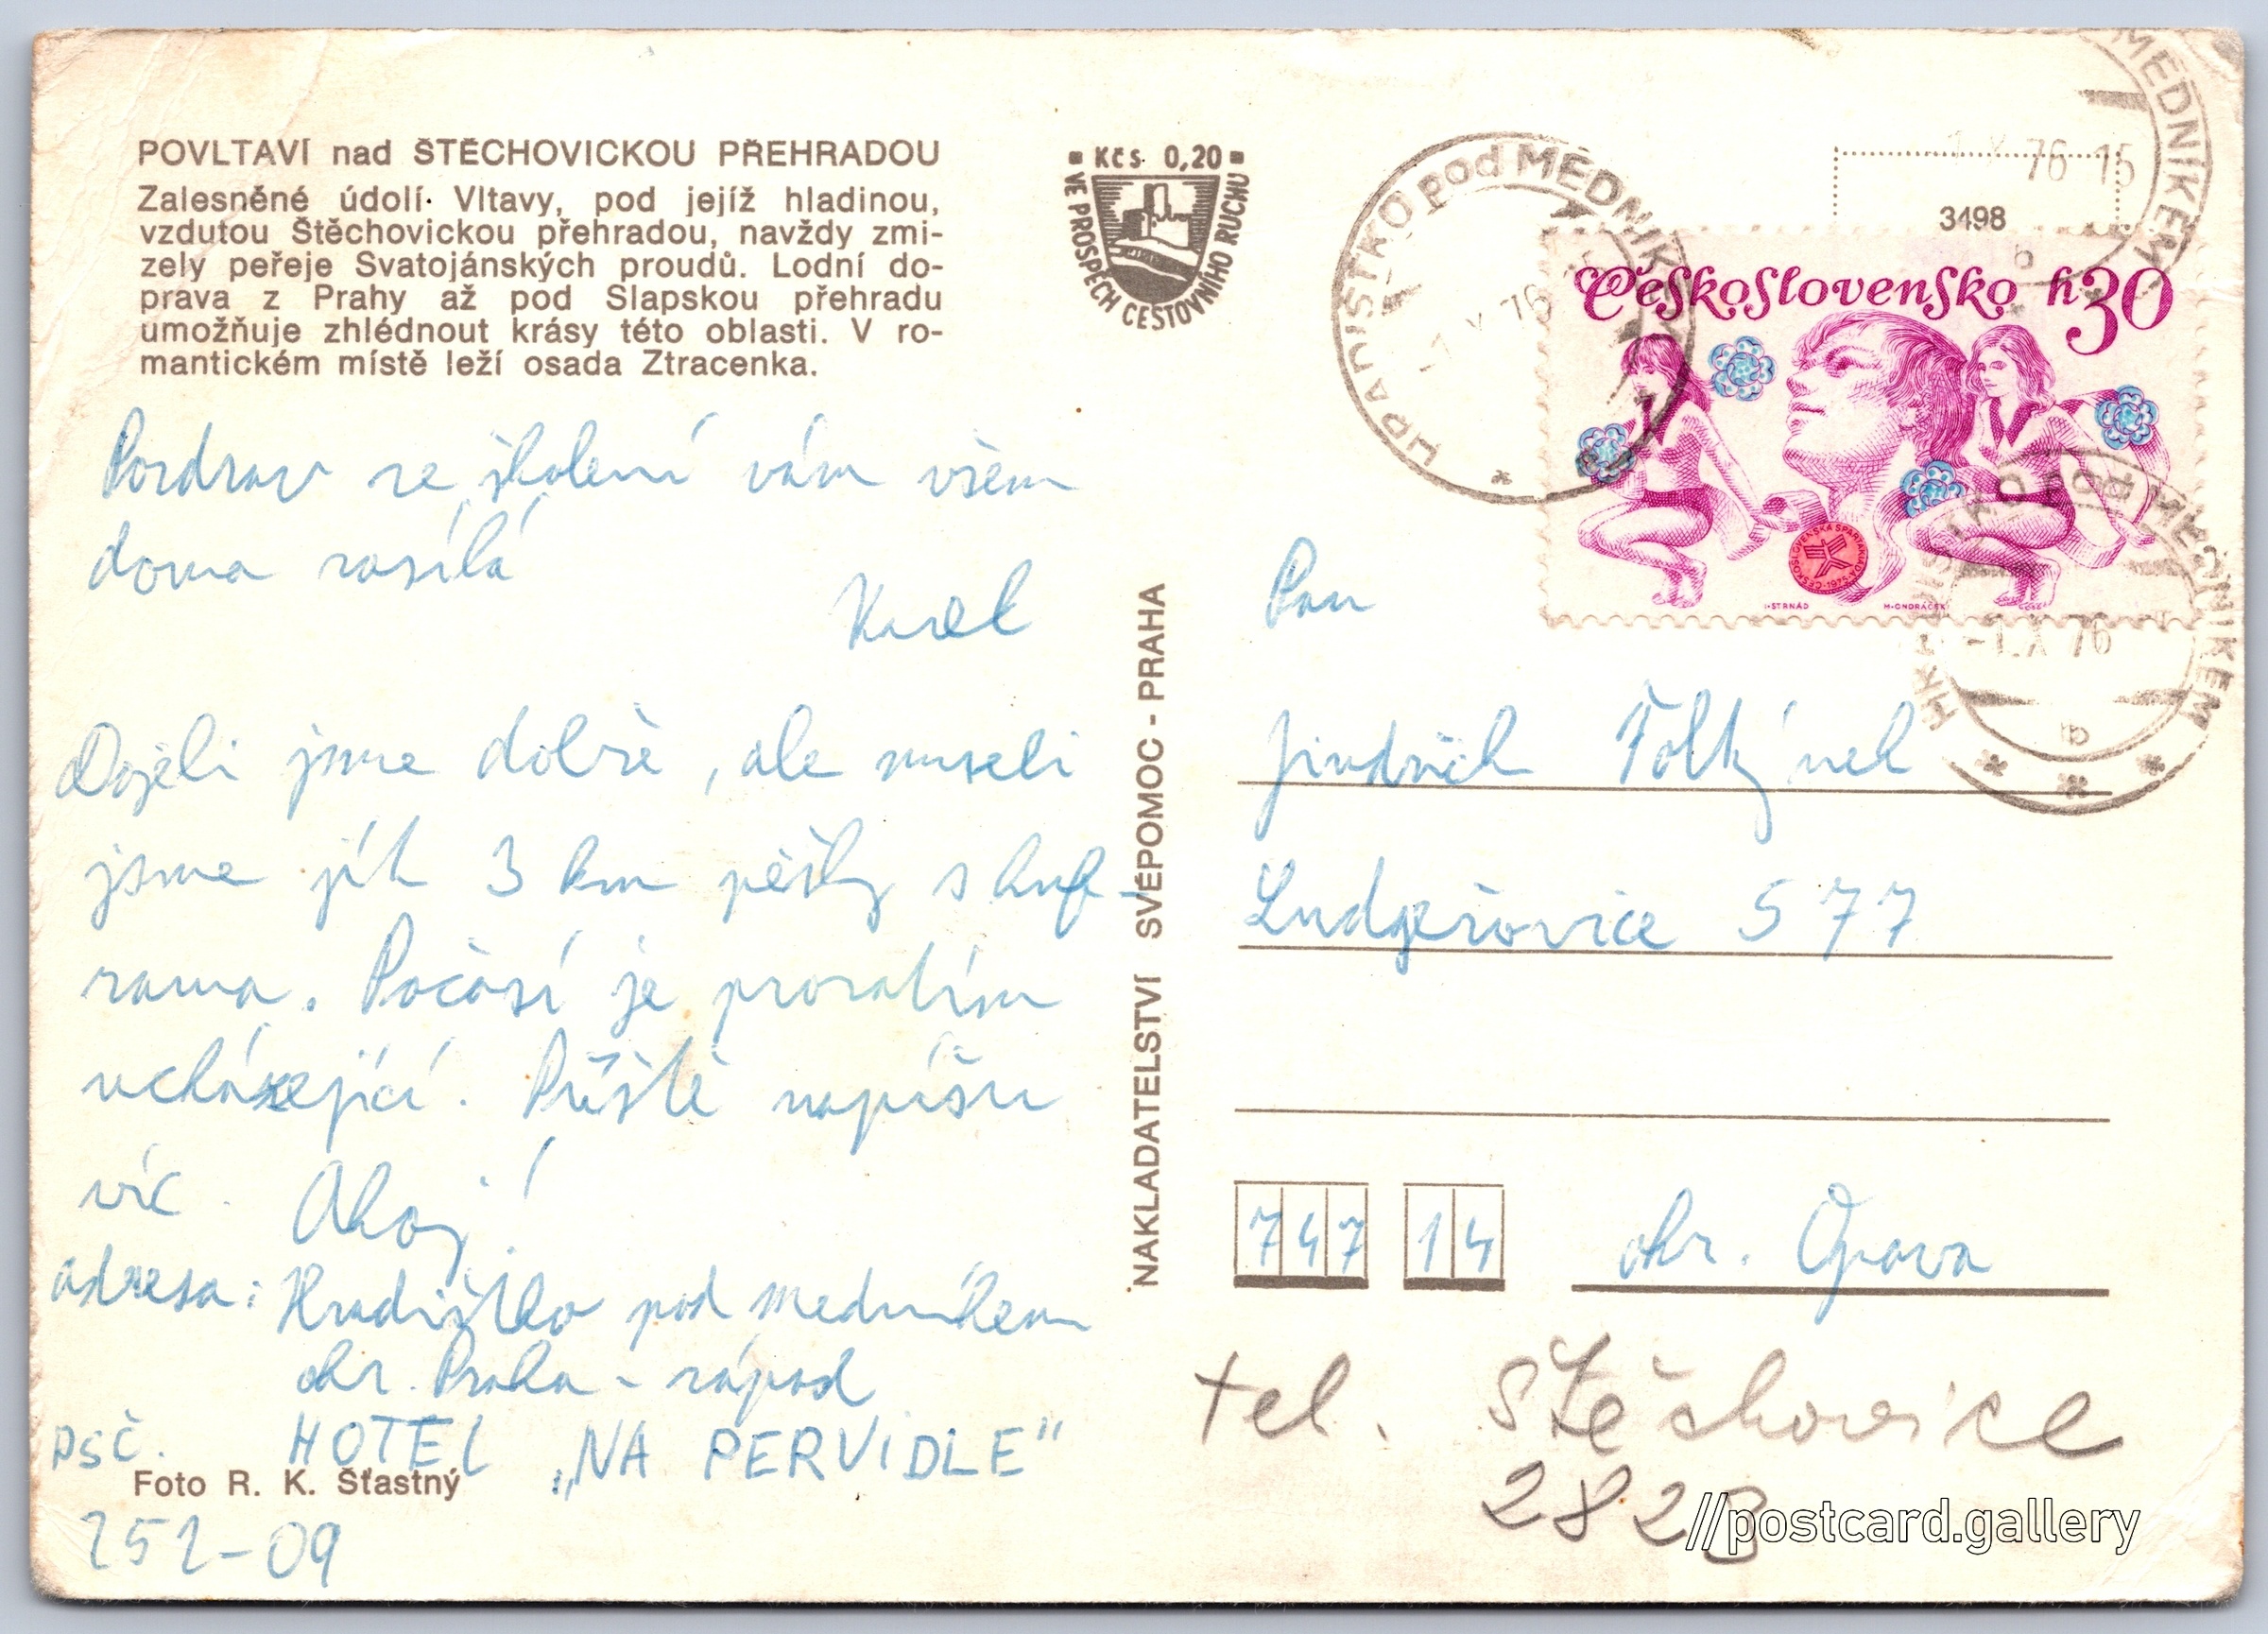 POVLTAVÍ nad ŠTĚCHOVICKOU PŘEHRADOU
Zalesněné údolí Vltavy, pod jejíž hladinou,
vzdutou Štěchovickou přehradou, navždy zmi-
zely peřeje Svatojánských proudů. Lodní do-
prava z Prahy až pod Slapskou přehradu
umožňuje zhlédnout krásy této oblasti. V ro-
mantickém místě leží osada Ztracenka.
Kčs 0,20
VE PROSPĚCH CESTOVNÍHO RUCHU
Pozdrav ze školení vám všem
doma zasílá
Karel
Dojeli jsme dobře, ale museli
jsme jít 3 km pěšky s kuf-
rama. Počasí je prozatím
ucházející. Příště napíšu
víc. Ahoj!
adresa: Hradištko pod medníkem
okr. Praha - západ
PSČ. HOTEL „NA PERVIDLE"
Foto R. K. Šťastný
252-09
NAKLADATELSTVÍ SVÉPOMOC - PRAHA
HRADIŠTKO pod MEDNÍKEM
-1.X 76
MEDNÍKEM
76-15
3498
Československo h 30
ČESKOSLOVENSKÁ SPARTAKIÁDA 1975
I. STRNAD
M. ONDRÁČEK
pod MEDNÍKEM
-1.X 76
a
Pan
Jindřich
Ludgeřovice 577
747 14 okr. Opava
tel. Štěchovice
282B
//postcard.gallery